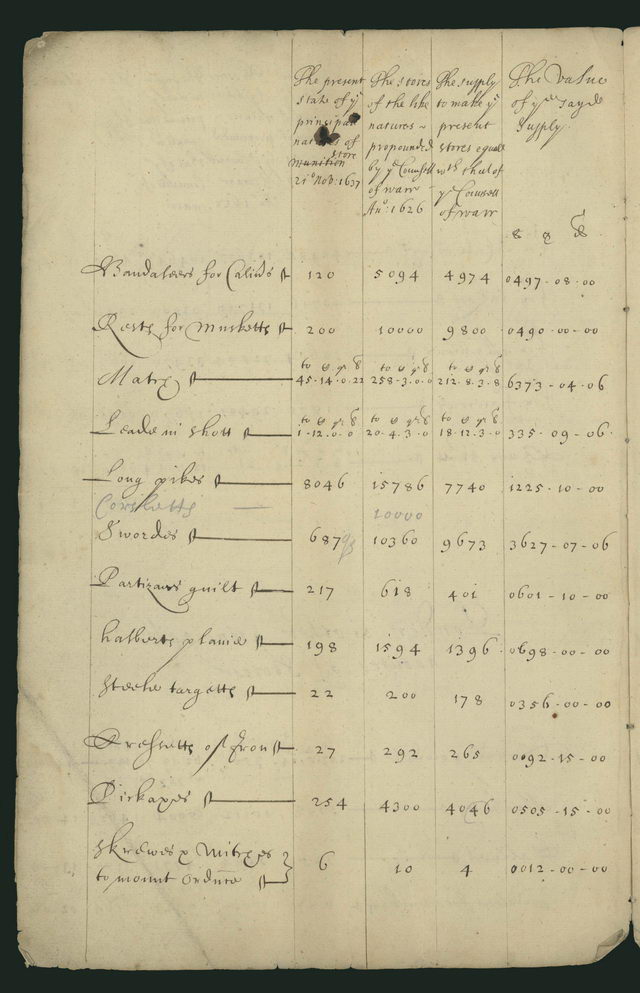 The present
state of yᵉ
principall
natures of
store
munition
21° Nob: 1637
The stores
of the like
natures ~
propounded
by yᵉ Counsell
of warr
Anº: 1626
The supply
to make yᵉ
present
stores equall
wᵗʰ that of
yᵉ Counsell
of warr
The value
of yᵉ sayde
Supply
Bandaleers for Calivers 120 5094 4974 0497-08-00
Rests for Musketts 200 10000 9800 0490-00-00
Match 45-14-0-22 258-3-0-0 212-8-3-8 6373-04-06
Leade in shott 1-12-0-0 20-4-3-0 18-12-3-0 335-09-06
Long pikes 8046 15786 7740 1225-10-00
Corsletts — 10000
Swordes 687 10360 9673 3627-07-06
Partizans guilt 217 618 401 0601-10-00
halberts plaine 198 1594 1396 0698-00-00
Steele targetts 22 200 178 0356-00-00
Cressetts of Iron 27 292 265 0092-15-00
Pickaxes 254 4300 4046 0505-15-00
Skrewes
to mount Ordnce 6 10 4 0012-00-00